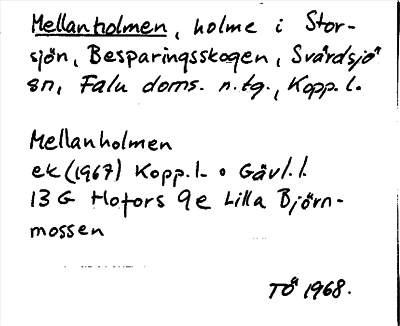 Mellanholmen, holme i Stor-
sjön, Besparingsskogen, Svärdsjö
sn, Falu doms. n. tg., Kopp. l.
Mellanholmen
ek (1967) Kopp. l. o Gävl. l.
13 G Hofors 9e Lilla Björn-
mossen
TÖ 1968.